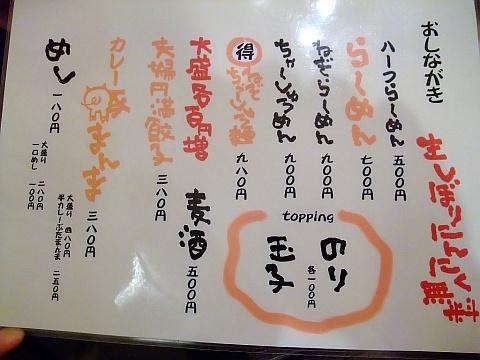 おしながき
生しぼりにんにく無料
ハーフらーめん 五〇〇円
らーめん 七〇〇円
ねぎらーめん 九〇〇円
ちゃーしゅうめん 九〇〇円
得 ねぎとちゃーしゅう麺 九八〇円
大盛各百円増
夫婦円満餃子 三八〇円
麦酒 五〇〇円
topping
のり
玉子
各一〇〇円
カレー豚まんま 三八〇円
大盛り 四八〇円
半カレーぶたまんま 二五〇円
めし 一八〇円
大盛り 二八〇円
一口めし 一〇〇円